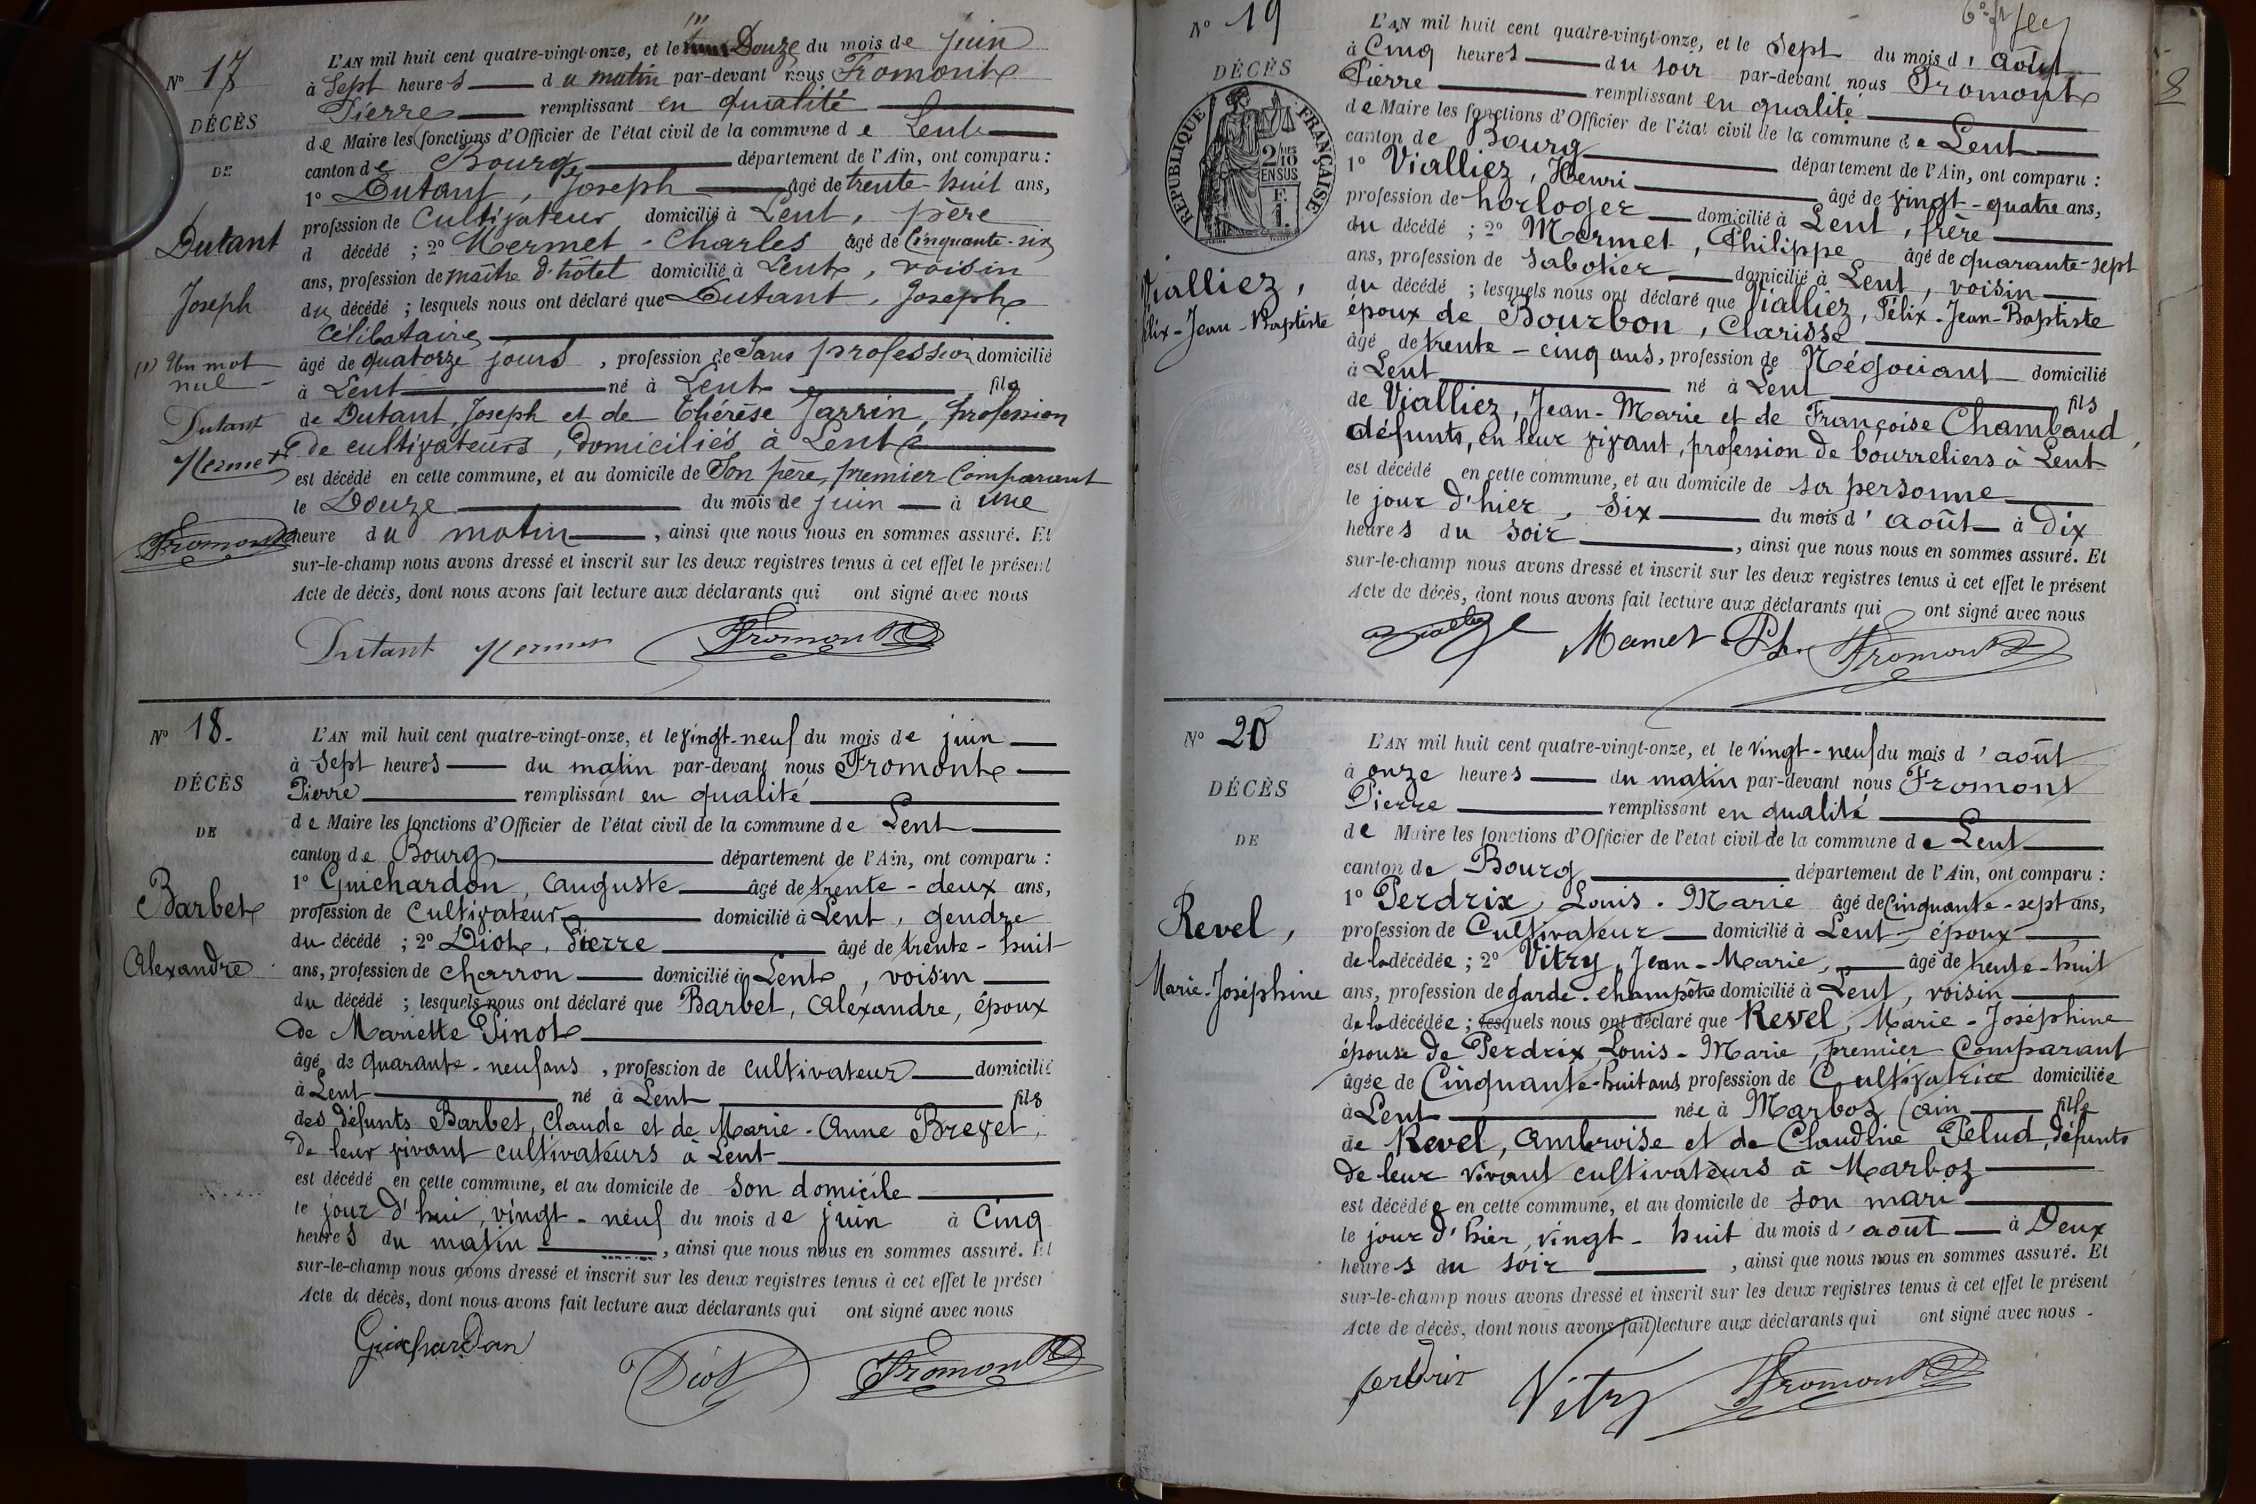 N° 17
DÉCÈS
DE
Dutant
Joseph
(1) Un mot
nul
Dutant
Mermet
Fromont
L'AN mil huit cent quatre-vingt-onze, et le (1) Douze du mois de juin
à Sept heures du matin par-devant nous Fromont
Pierre remplissant en qualité
de Maire les fonctions d'Officier de l'état civil de la commune de Lent
canton de Bourg département de l'Ain, ont comparu :
1° Dutant, Joseph âgé de trente-huit ans,
profession de Cultivateur domicilié à Lent, père
d décédé ; 2° Mermet - Charles âgé de Cinquante-six
ans, profession de maître d'hôtel domicilié à Lent, voisin
du décédé ; lesquels nous ont déclaré que Dutant, Joseph
Célibataire
âgé de quatorze jours, profession de Sans profession domicilié
à Lent né à Lent fils
de Dutant, Joseph et de Thérèse Jarrin, profession
de cultivateurs, domiciliés à Lent
est décédé en cette commune, et au domicile de Son père, premier Comparant
le Douze du mois de juin à une
heure du matin, ainsi que nous nous en sommes assuré. Et
sur-le-champ nous avons dressé et inscrit sur les deux registres tenus à cet effet le présent
Acte de décès, dont nous avons fait lecture aux déclarants qui ont signé avec nous
Dutant Mermet Fromont
N° 18.
DÉCÈS
DE
Barbet
Alexandre
L'AN mil huit cent quatre-vingt-onze, et le vingt-neuf du mois de juin
à sept heures du matin par-devant nous Fromont
Pierre remplissant en qualité
de Maire les fonctions d'Officier de l'état civil de la commune de Lent
canton de Bourg département de l'Ain, ont comparu :
1° Guichardon, Auguste âgé de trente-deux ans,
profession de Cultivateur domicilié à Lent, gendre
du décédé ; 2° Diot, Pierre âgé de trente-huit
ans, profession de charron domicilié à Lent, voisin
du décédé ; lesquels nous ont déclaré que Barbet, Alexandre, époux
de Mariette Pinot
âgé de quarante-neuf ans, profession de cultivateur domicilié
à Lent né à Lent fils
des défunts Barbet, Claude et de Marie-Anne Brevet,
De leur vivant cultivateurs à Lent
est décédé en cette commune, et au domicile de son domicile
le jour d'hui, vingt-neuf du mois de juin à Cinq
heures du matin, ainsi que nous nous en sommes assuré. Et
sur-le-champ nous avons dressé et inscrit sur les deux registres tenus à cet effet le présent
Acte de décès, dont nous avons fait lecture aux déclarants qui ont signé avec nous
Guichardon Diot Fromont
8
N° 19
DÉCÈS
RÉPUBLIQUE FRANÇAISE
2/10 EN SUS
Vialliez,
Félix-Jean-Baptiste
L'AN mil huit cent quatre-vingt-onze, et le Sept du mois d'août
à Cinq heures du soir par-devant nous Fromont
Pierre remplissant en qualité
de Maire les fonctions d'Officier de l'état civil de la commune de Lent
canton de Bourg département de l'Ain, ont comparu :
1° Vialliez, Henri âgé de vingt-quatre ans,
profession de horloger domicilié à Lent, frère
du décédé ; 2° Mermet, Philippe âgé de quarante-sept
ans, profession de sabotier domicilié à Lent, voisin
du décédé ; lesquels nous ont déclaré que Vialliez, Félix-Jean-Baptiste
époux de Bourbon, Clarisse
âgé de trente-cinq ans, profession de Négociant domicilié
à Lent né à Lent fils
de Vialliez, Jean-Marie et de Françoise Chambaud,
défunts, en leur vivant, profession de bourreliers à Lent
est décédé en cette commune, et au domicile de sa personne
le jour d'hier, six du mois d'août à Dix
heures du soir, ainsi que nous nous en sommes assuré. Et
sur-le-champ nous avons dressé et inscrit sur les deux registres tenus à cet effet le présent
Acte de décès, dont nous avons fait lecture aux déclarants qui ont signé avec nous
Mamet Ph. Fromont
N° 20
DÉCÈS
DE
Revel,
Marie-Joséphine
L'AN mil huit cent quatre-vingt-onze, et le vingt-neuf du mois d'août
à onze heures du matin par-devant nous Fromont
Pierre remplissant en qualité
de Maire les fonctions d'Officier de l'état civil de la commune de Lent
canton de Bourg département de l'Ain, ont comparu :
1° Perdrix, Louis-Marie âgé de Cinquante-sept ans,
profession de Cultivateur domicilié à Lent, époux
de la décédée ; 2° Vitry, Jean-Marie, âgé de trente-huit
ans, profession de garde-champêtre domicilié à Lent, voisin
de la décédée ; lesquels nous ont déclaré que Revel, Marie-Joséphine
épouse de Perdrix, Louis-Marie, premier Comparant
âgée de Cinquante-huit ans profession de Cultivatrice domiciliée
à Lent née à Marboz (Ain fille
de Revel, Ambroise et de Claudine Pelud, défunts
De leur vivant cultivateurs à Marboz
est décédée en cette commune, et au domicile de son mari
le jour d'hier, vingt-huit du mois d'août à Deux
heures du soir, ainsi que nous nous en sommes assuré. Et
sur-le-champ nous avons dressé et inscrit sur les deux registres tenus à cet effet le présent
Acte de décès, dont nous avons fait lecture aux déclarants qui ont signé avec nous.
perdrix Vitry Fromont